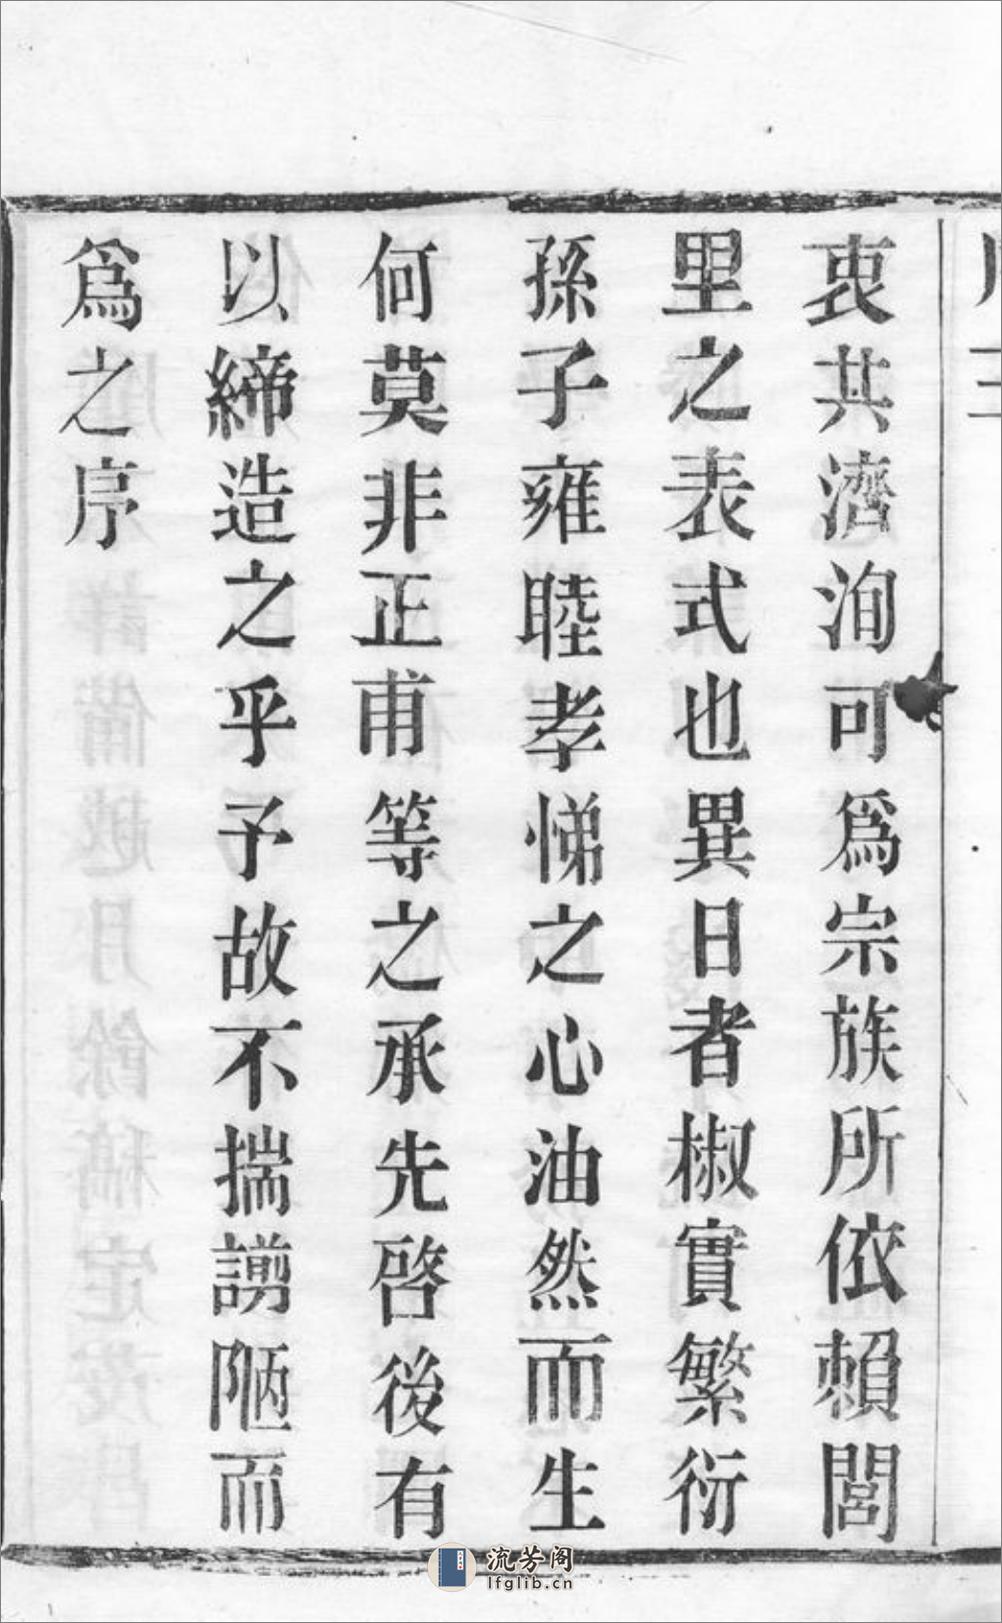 衷共濟洵可爲宗族所依賴閭
里之表式也異日者椒實繁衍
孫子雍睦孝悌之心油然而生
何莫非正甫等之承先啓後有
以締造之乎予故不揣謭陋而
爲之序
流芳阁
lfglib.cn